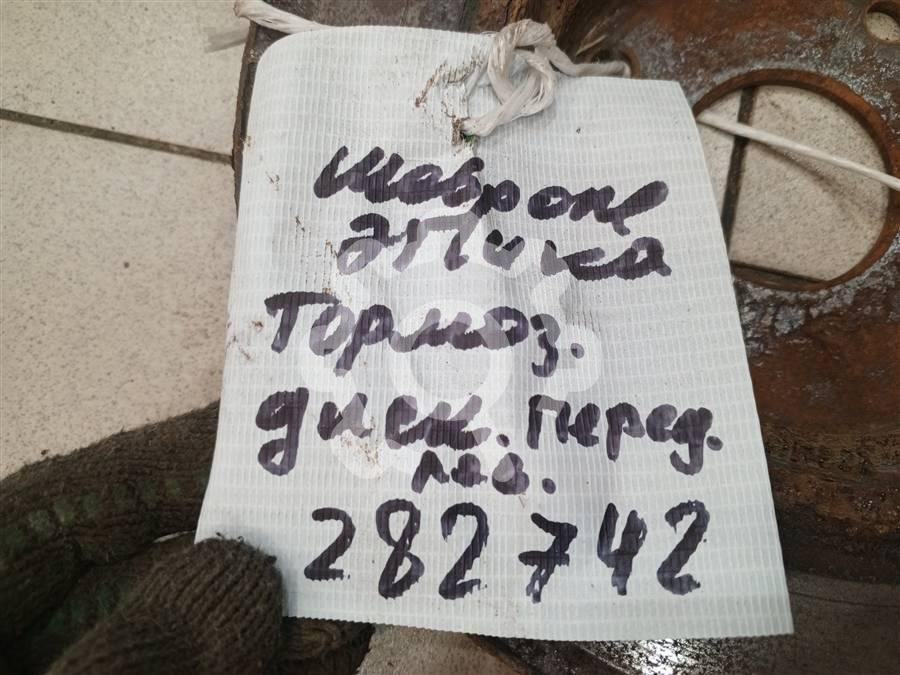 Шевроле
Эпика
Тормоз.
диск. перед.
лев.
282742